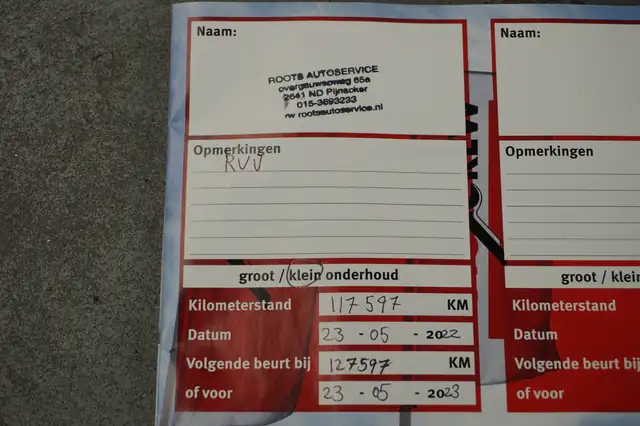 Naam:
ROOTS AUTOSERVICE
overgauwseweg 65a
2641 ND Pijnacker
015-3693233
rootsautoservice.nl
Opmerkingen
RVV
groot / klein onderhoud
Kilometerstand 117597 KM
Datum 23 - 05 - 2022
Volgende beurt bij 127597 KM
of voor 23 - 05 - 2023
Naam:
Opmerkingen
groot / klein
Kilometerstand
Datum
Volgende beurt bij
of voor